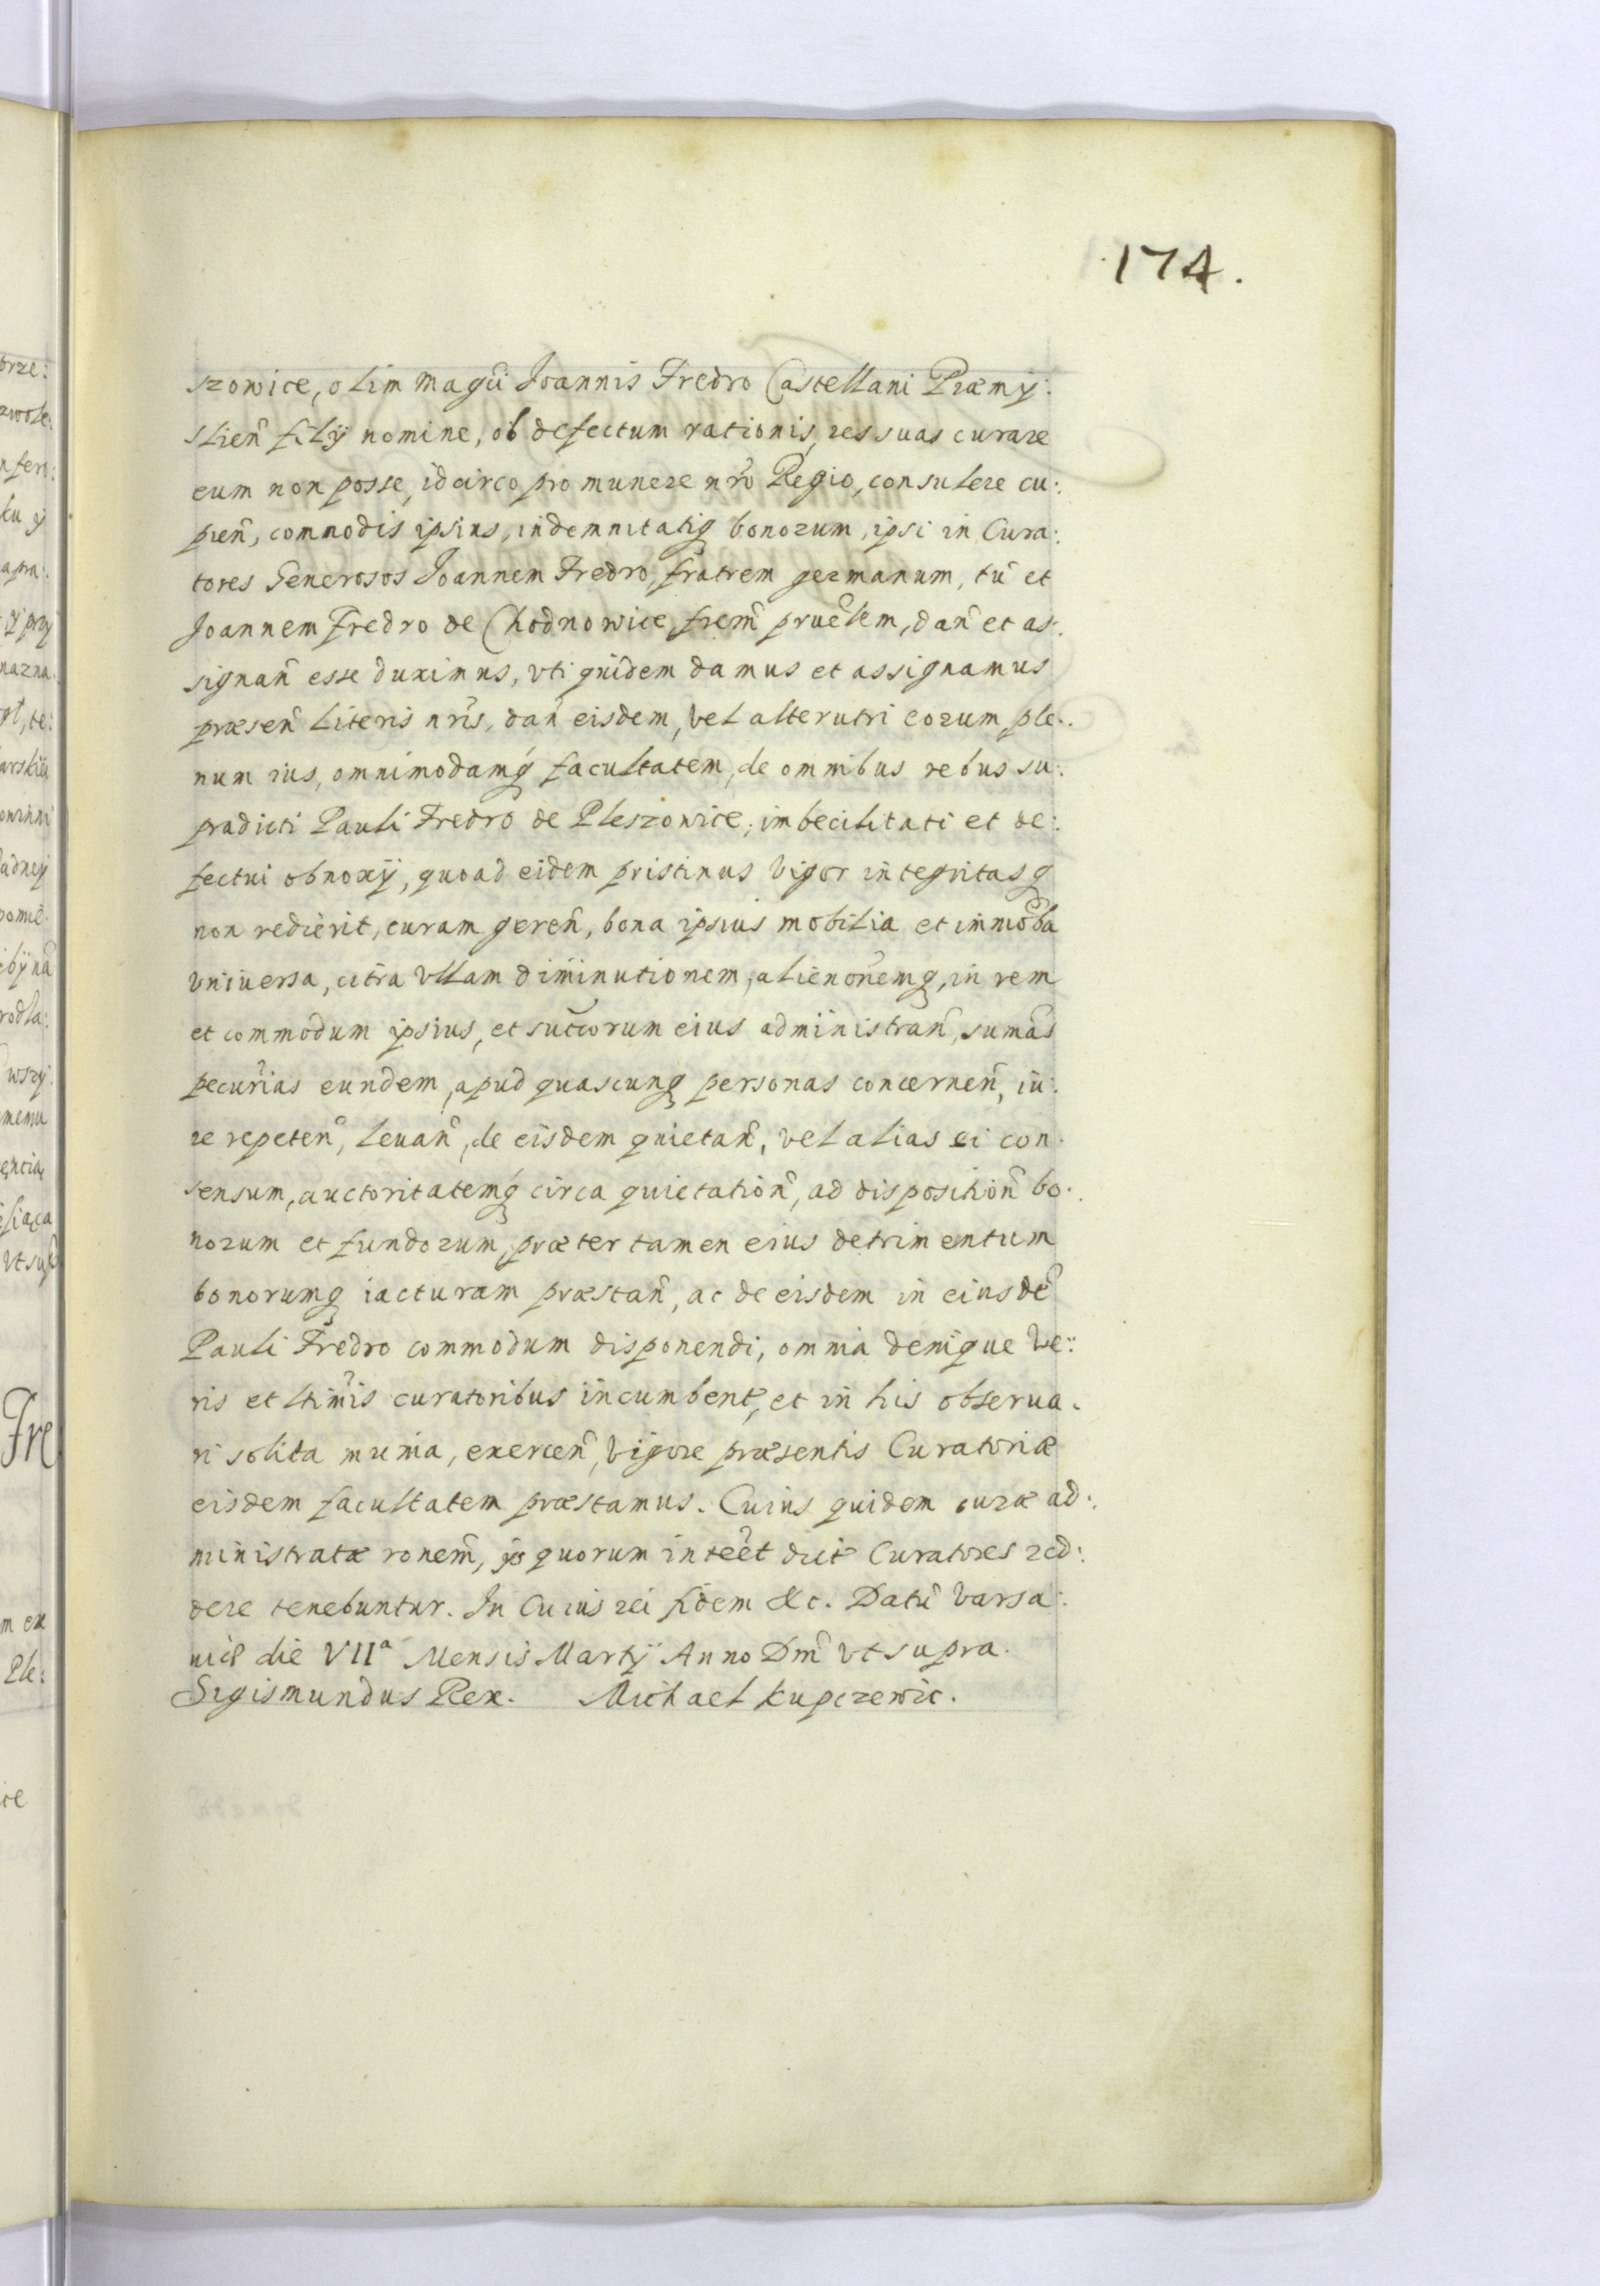 174.
szowice, olim Magci Joannis Fredro Castellani Præmy:
slien̄ filij nomine, ob defectum rationis, res suas curare
eum non posse, idcirco pro munere nr̄o Regio, consulere cu:
pien̄, commodis ipsius, indemnitatiq bonorum, ipsi in Cura:
tores Generosos Joannem Fredro, fratrem germanum, tū et
Joannem Fredro de Chodnowice, frem̄ pruēlem, dan̄ et as:
signan̄ esse duximus, vti quidem damus et assignamus
præsen̄ literis nr̄is, dan̄ eisdem, vel alterutri eorum ple:
num ius, omnimodamq́ facultatem, de omnibus rebus su:
pradicti Pauli Fredro de Pleszowice, imbecilitati et de:
fectui obnoxij, quoad eidem pristinus vigor integritasq
non redierit, curam geren̄, bona ipsius mobilia et immōba
vniuersa, citra vllam diminutionem, alienōnemq, in rem
et commodum ipsius, et succorum eius administran̄, sumās
pecun̄ias eundem, apud quascunq personas concernen̄, iu:
re repeten̄, leuan̄, de eisdem quietan̄, vel alias ei con:
sensum, auctoritatemq́ circa quietation̄, ad disposition̄ bo:
norum et fundorum, præter tamen eius detrimentum
bonorumq iacturam præstan̄, ac de eisdem in eiusdē
Pauli Fredro commodum disponendi, omnia denique ve:
ris et ltimis curatoribus incumbent, et in his obserua:
ri solita munia, exercen̄, vigore præsentis Curatoriæ
eisdem facultatem præstamus. Cuius quidem curæ ad:
ministratæ ronem̄, quorum inteēt dict Curatores red:
dere tenebuntur. In Cuius rei fidem &c. Datū Varsa:
uiæ die VIIa Mensis Martij Anno Dm̄ vt supra.
Sigismundus Rex. Michael Kupczewic.